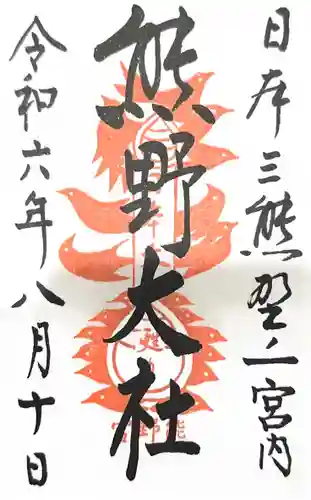 日本三熊野之一宮内
熊野大社
令和六年八月十日